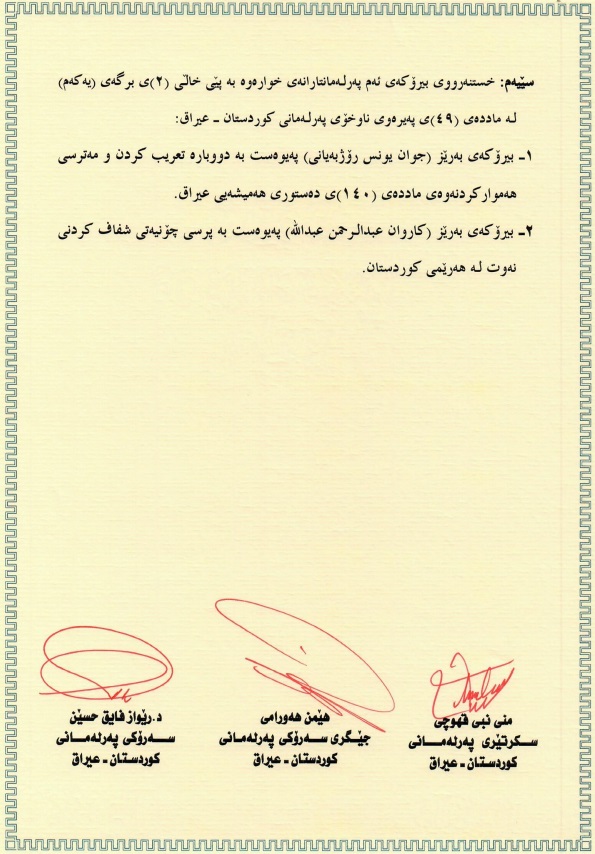 سێیەم: خستنەرووی بیرۆکەی ئەم پەرلەمانتارانەی خوارەوە بە پێی خاڵی (٢)ی برگەی (یەکەم)
لە ماددەی (٤٩)ی پەیرەوی ناوخۆی پەرلەمانی کوردستان - عیراق:
١- بیرۆکەی بەرێز (جوان یونس رۆژبەیانی) پەیوەست بە دووبارە تعریب کردن و مەترسی
هەموارکردنەوەی ماددەی (١٤٠)ی دەستوری هەمیشەیی عیراق.
٢- بیرۆکەی بەرێز (کاروان عبدالرحمن عبدالله) پەیوەست بە پرسی چۆنیەتی شفاف کردنی
نەوت لە هەرێمی کوردستان.
منى نبی قهوچی
سکرتێری پەرلەمانی
کوردستان - عیراق
هێمن هەورامی
جێگری سەرۆکی پەرلەمانی
کوردستان - عیراق
د.رێواز فایق حسێن
سەرۆکی پەرلەمانی
کوردستان - عیراق